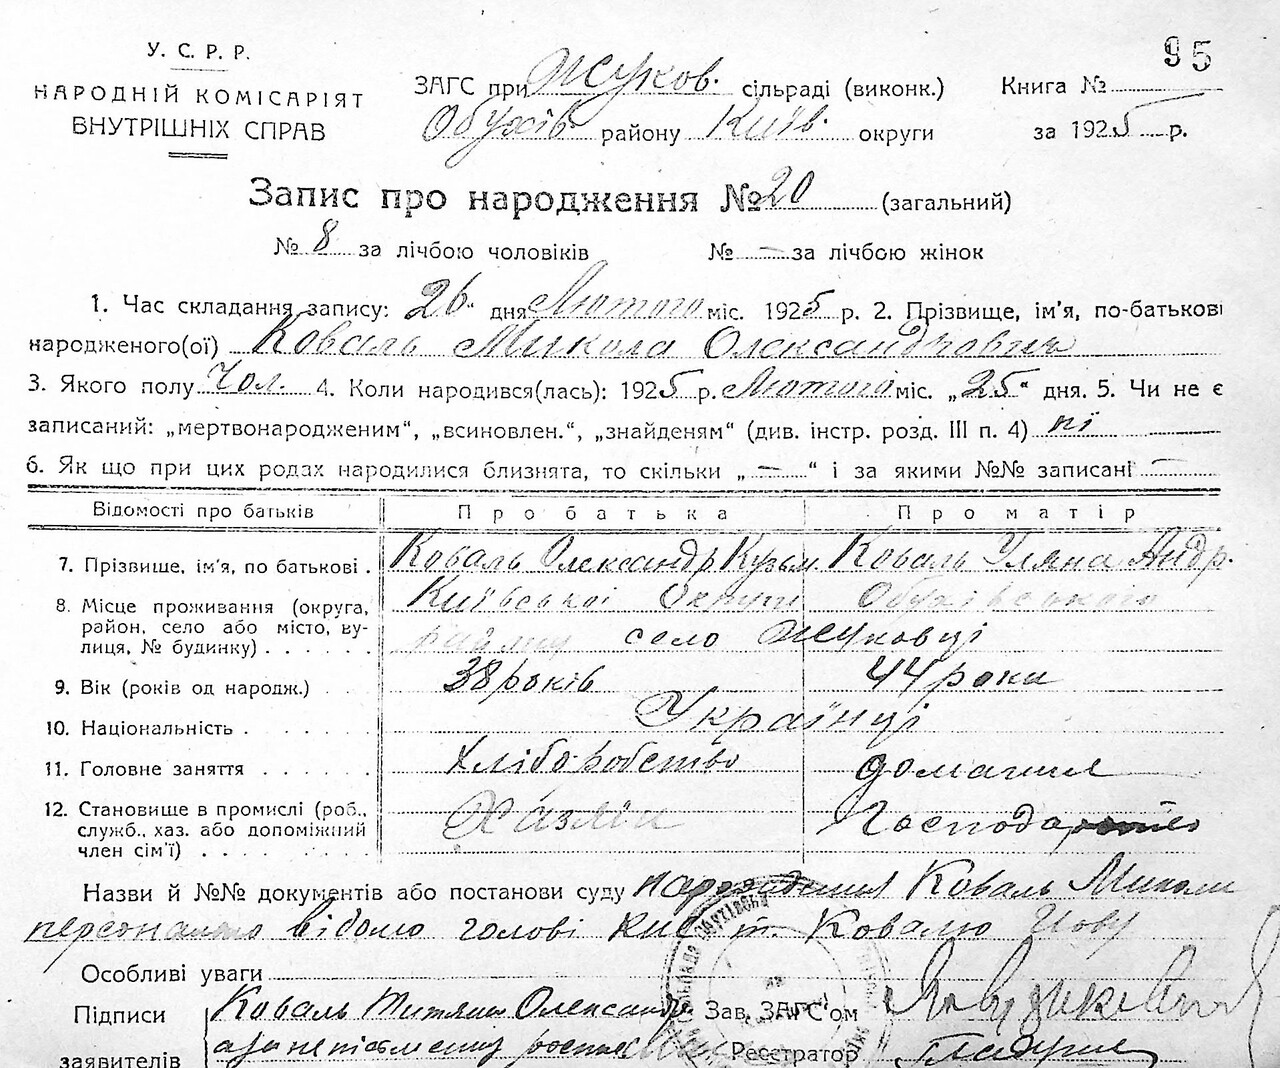 95
У. С. Р. Р.
НАРОДНІЙ КОМІСАРІЯТ
ВНУТРІШНІХ СПРАВ
ЗАГС при Жуков. сільраді (виконк.)
Обухів. району Київ. округи
Книга №
за 1925 р.
Запис про народження № 20 (загальний)
№ 8 за лічбою чоловіків № — за лічбою жінок
1. Час складання запису: 26 дня Лютого міс. 1925 р. 2. Прізвище, ім'я, по-батькові
народженого(ої) Коваль Микола Олександрович
3. Якого полу Чол. 4. Коли народився(лась): 1925 р. Лютого міс. „25“ дня. 5. Чи не є
записаний: „мертвонародженим“, „всиновлен.“, „знайденям“ (див. інстр. розд. III п. 4) ні
6. Як що при цих родах народилися близнята, то скільки „—“ і за якими №№ записані —
Відомості про батьків Про батька Про матір
7. Прізвище, ім'я, по батькові . Коваль Олександр Кузьм. Коваль Уляна Андр.
8. Місце проживання (округа, район, село або місто, вулиця, № будинку) . . . . . .
Київської Округи Обухівського
району село Жуковці
9. Вік (років од народж.) . . 38 років 44 роки
10. Національність . . . . . . Українці
11. Головне заняття . . . . . . Хліборобство домашня
12. Становище в промислі (роб., служб., хаз. або допоміжний член сім'ї) . . . . . . . . Хазяїн
Назви й №№ документів або постанови суду народження Коваль Миколи
персонально відомо голові КНС т. Ковалю
Особливі уваги
Підписи
заявителів
Коваль Олександр
а за неписьменну
Зав. ЗАГС'ом
Реєстратор